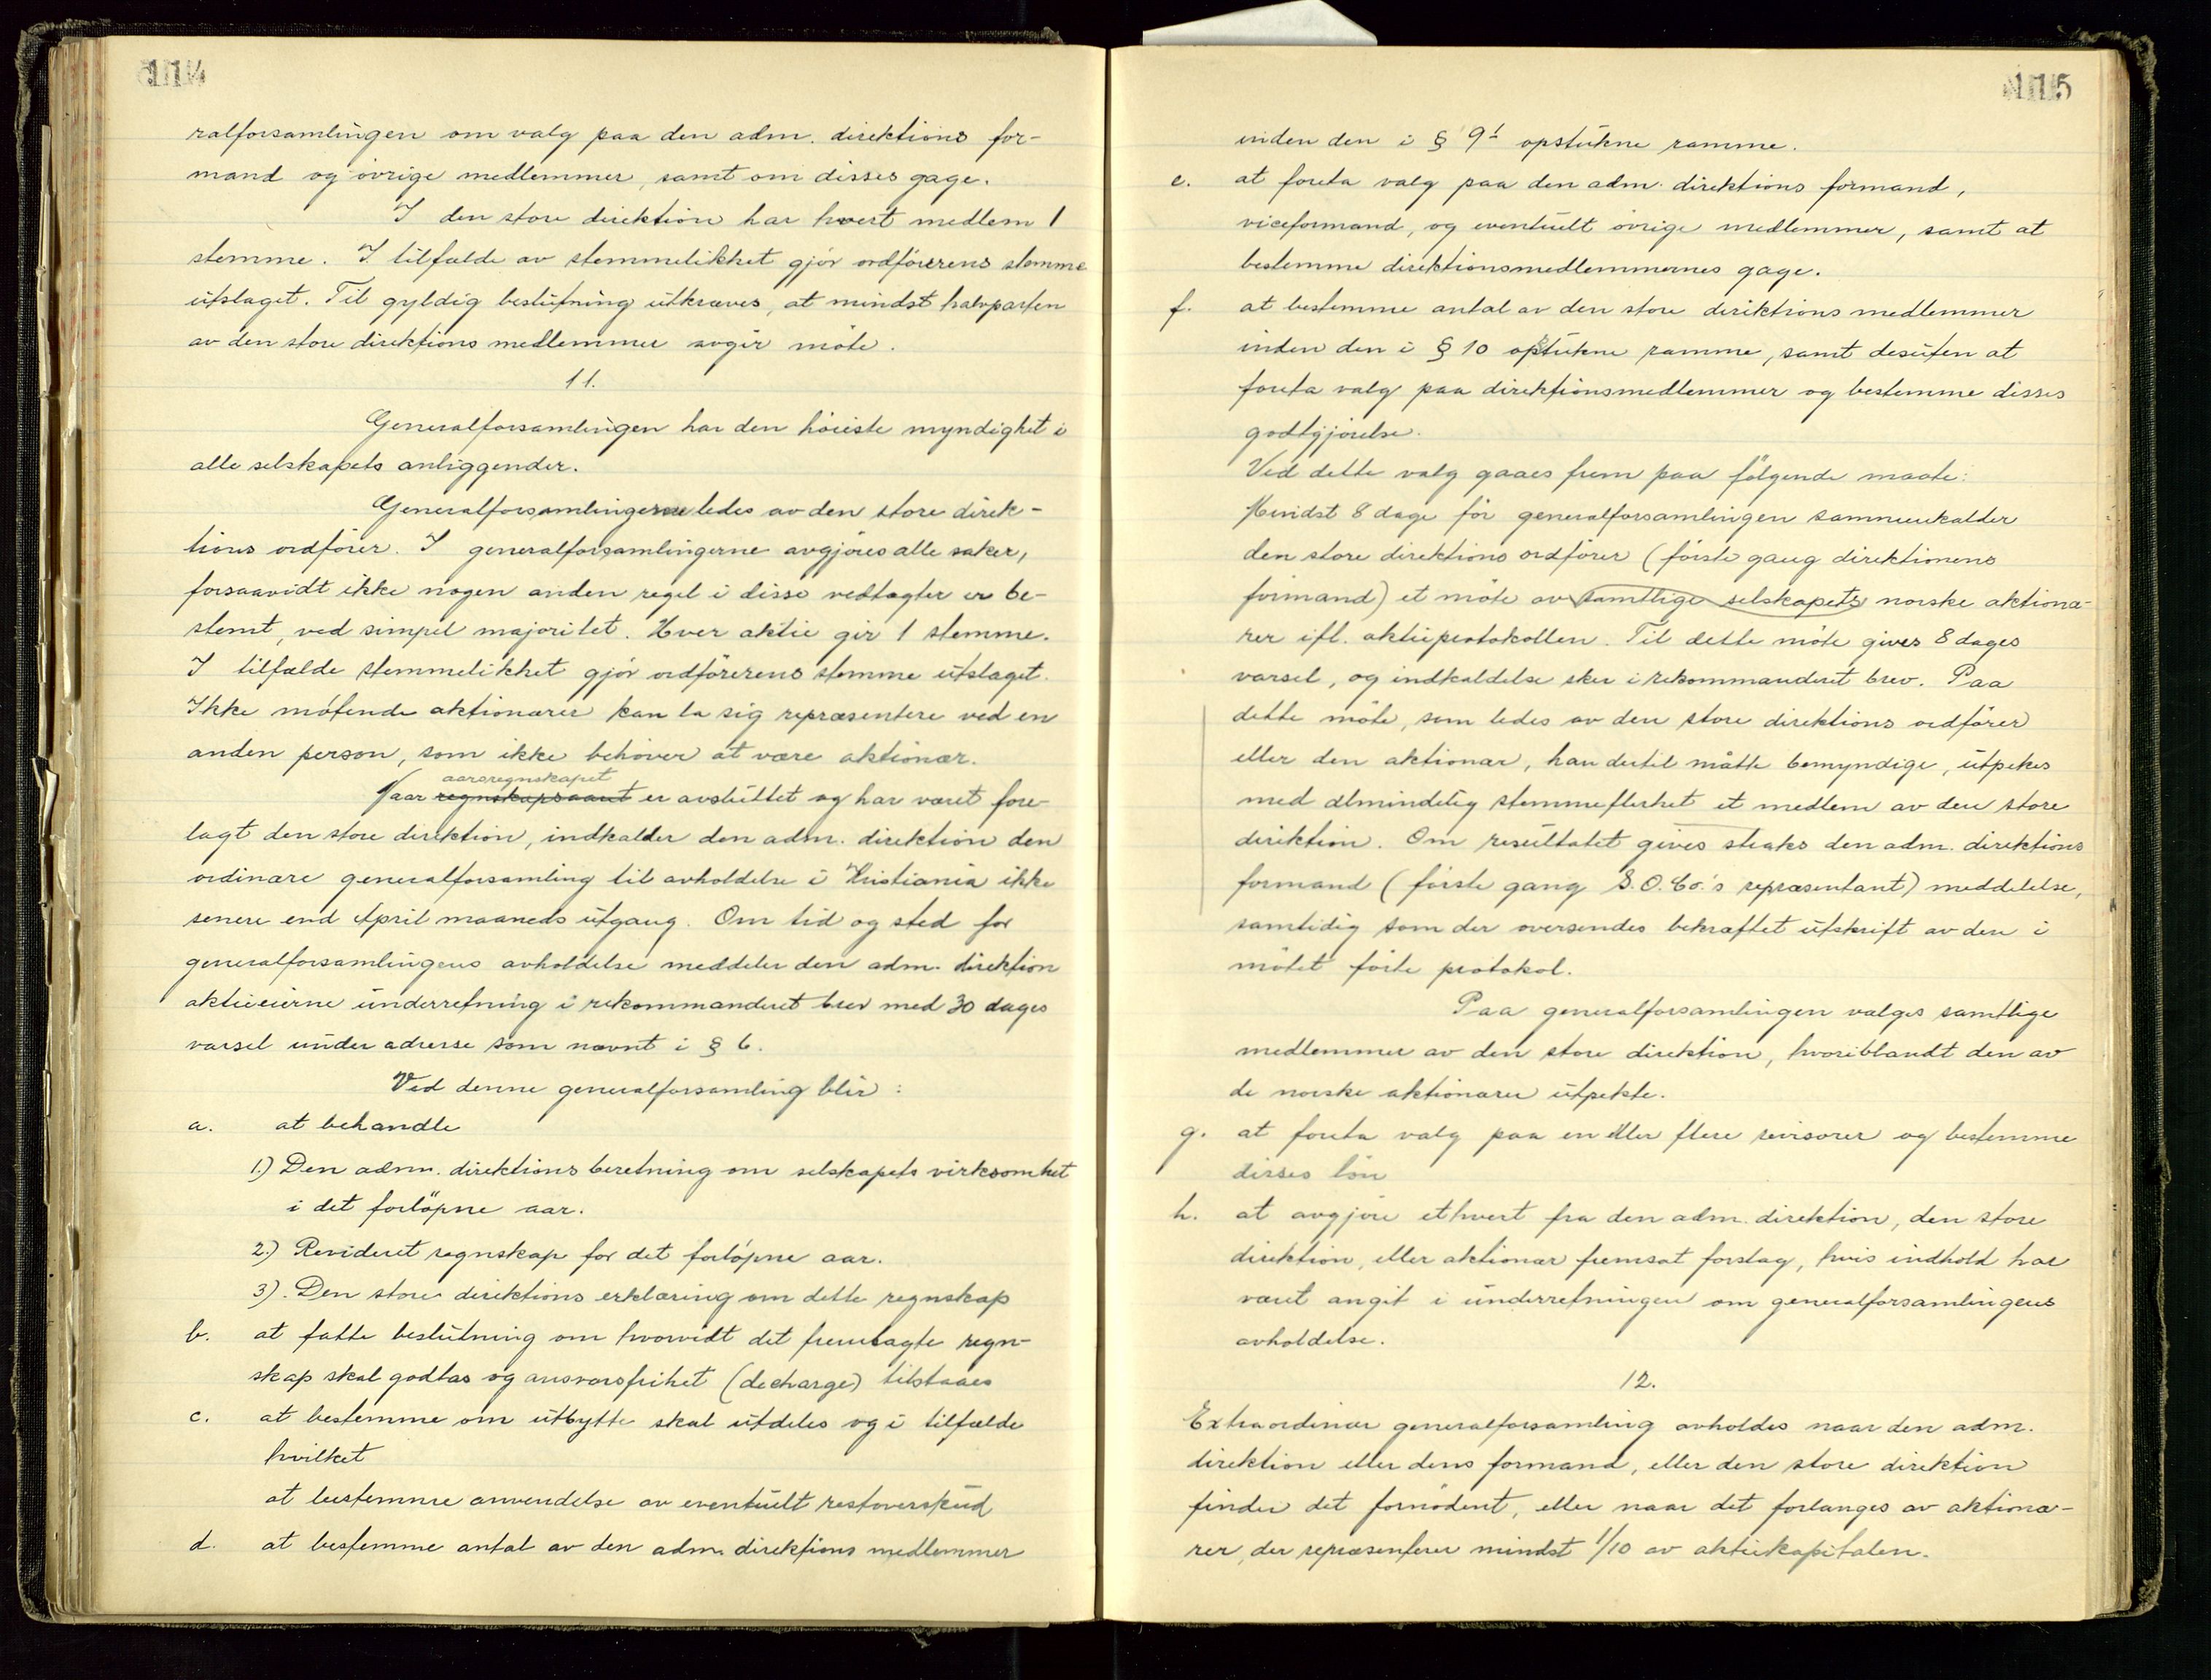 114
ralforsamlingen om valg paa den adm. direktions for-
mand og övrige medlemmer, samt om disses gage.
I den store direktion har hvert medlem 1
stemme. I tilfælde av stemmelikhet gjör ordförerens stemme
utslaget. Til gyldig beslutning utkræves, at mindst halvparten
av den store direktions medlemmer avgir möte.
11.
Generalforsamlingen har den höieste myndighet i
alle selskapets anliggender.
Generalforsamlingerne ledes av den store direk-
tions ordförer. I generalforsamlingerne avgjöres alle saker,
forsaavidt ikke nogen anden regel i disse vedtægter er be-
stemt, ved simpel majoritet. Hver aktie gir 1 stemme.
I tilfælde stemmelikhet gjör ordförerens stemme utslaget.
Ikke mötende aktionærer kan la sig repræsentere ved en
anden person, som ikke behöver at være aktionær.
aarsregnskapet
Naar regnskapsaaret er avsluttet og har været fore-
lagt den store direktion, indkalder den adm. direktion den
ordinære generalforsamling til avholdelse i Kristiania ikke
senere end April maaneds utgang. Om tid og sted for
generalforsamlingens avholdelse meddeler den adm. direktion
aktieeierne underretning i rekommanderet brev med 30 dages
varsel under adresse som nævnt i § 6.
Ved denne generalforsamling blir:
a. at behandle
1.) Den adm. direktions beretning om selskapets virksomhet
i det forlöpne aar.
2.) Revideret regnskap for det forlöpne aar.
3). Den store direktions erklæring om dette regnskap
b. at fatte beslutning om hvorvidt det fremlagte regn-
skap skal godtas og ansvarsfrihet (decharge) tilstaaes
c. at bestemme om utbytte skal utdeles og i tilfælde
hvilket
at bestemme anvendelse av eventuelt restoverskud
d. at bestemme antal av den adm. direktions medlemmer
115
inden den i § 9 1 opstukne ramme.
e. at foreta valg paa den adm. direktions formand,
viceformand, og eventuelt övrige medlemmer, samt at
bestemme direktionsmedlemmernes gage.
f. at bestemme antal av den store direktions medlemmer
inden den i § 10 opstukne ramme, samt desuten at
foreta valg paa direktionsmedlemmer og bestemme disses
godtgjörelse.
Ved dette valg gaaes frem paa fölgende maate:
Mindst 8 dage för generalforsamlingen sammenkalder
den store direktions ordförer (förste gang direktionens
formand) et möte av samtlige selskapets norske aktionæ-
rer ifl. aktieprotokollen. Til dette möte gives 8 dages
varsel, og indkaldelse sker i rekommanderet brev. Paa
dette möte, som ledes av den store direktions ordförer
eller den aktionær, han dertil måtte bemyndige, utpekes
med almindelig stemmeflerhet et medlem av den store
direktion. Om resultatet gives straks den adm. direktions
formand (förste gang S.O.Co.'s repræsentant) meddelelse,
samtidig som der oversendes bekræftet utskrift av den i
mötet förte protokol.
Paa generalforsamlingen vælges samtlige
medlemmer av den store direktion, hvoriblandt den av
de norske aktionærer utpekte.
g. at foreta valg paa en eller flere revisorer og bestemme
disses lön
h. at avgjöre ethvert fra den adm. direktion, den store
direktion, eller aktionær fremsat forslag, hvis indhold har
været angit i underretningen om generalforsamlingens
avholdelse.
12.
Extraordinær generalforsamling avholdes naar den adm.
direktion eller dens formand, eller den store direktion
finder det fornödent, eller naar det forlanges av aktionæ-
rer, der repræsenterer mindst 1/10 av aktiekapitalen.